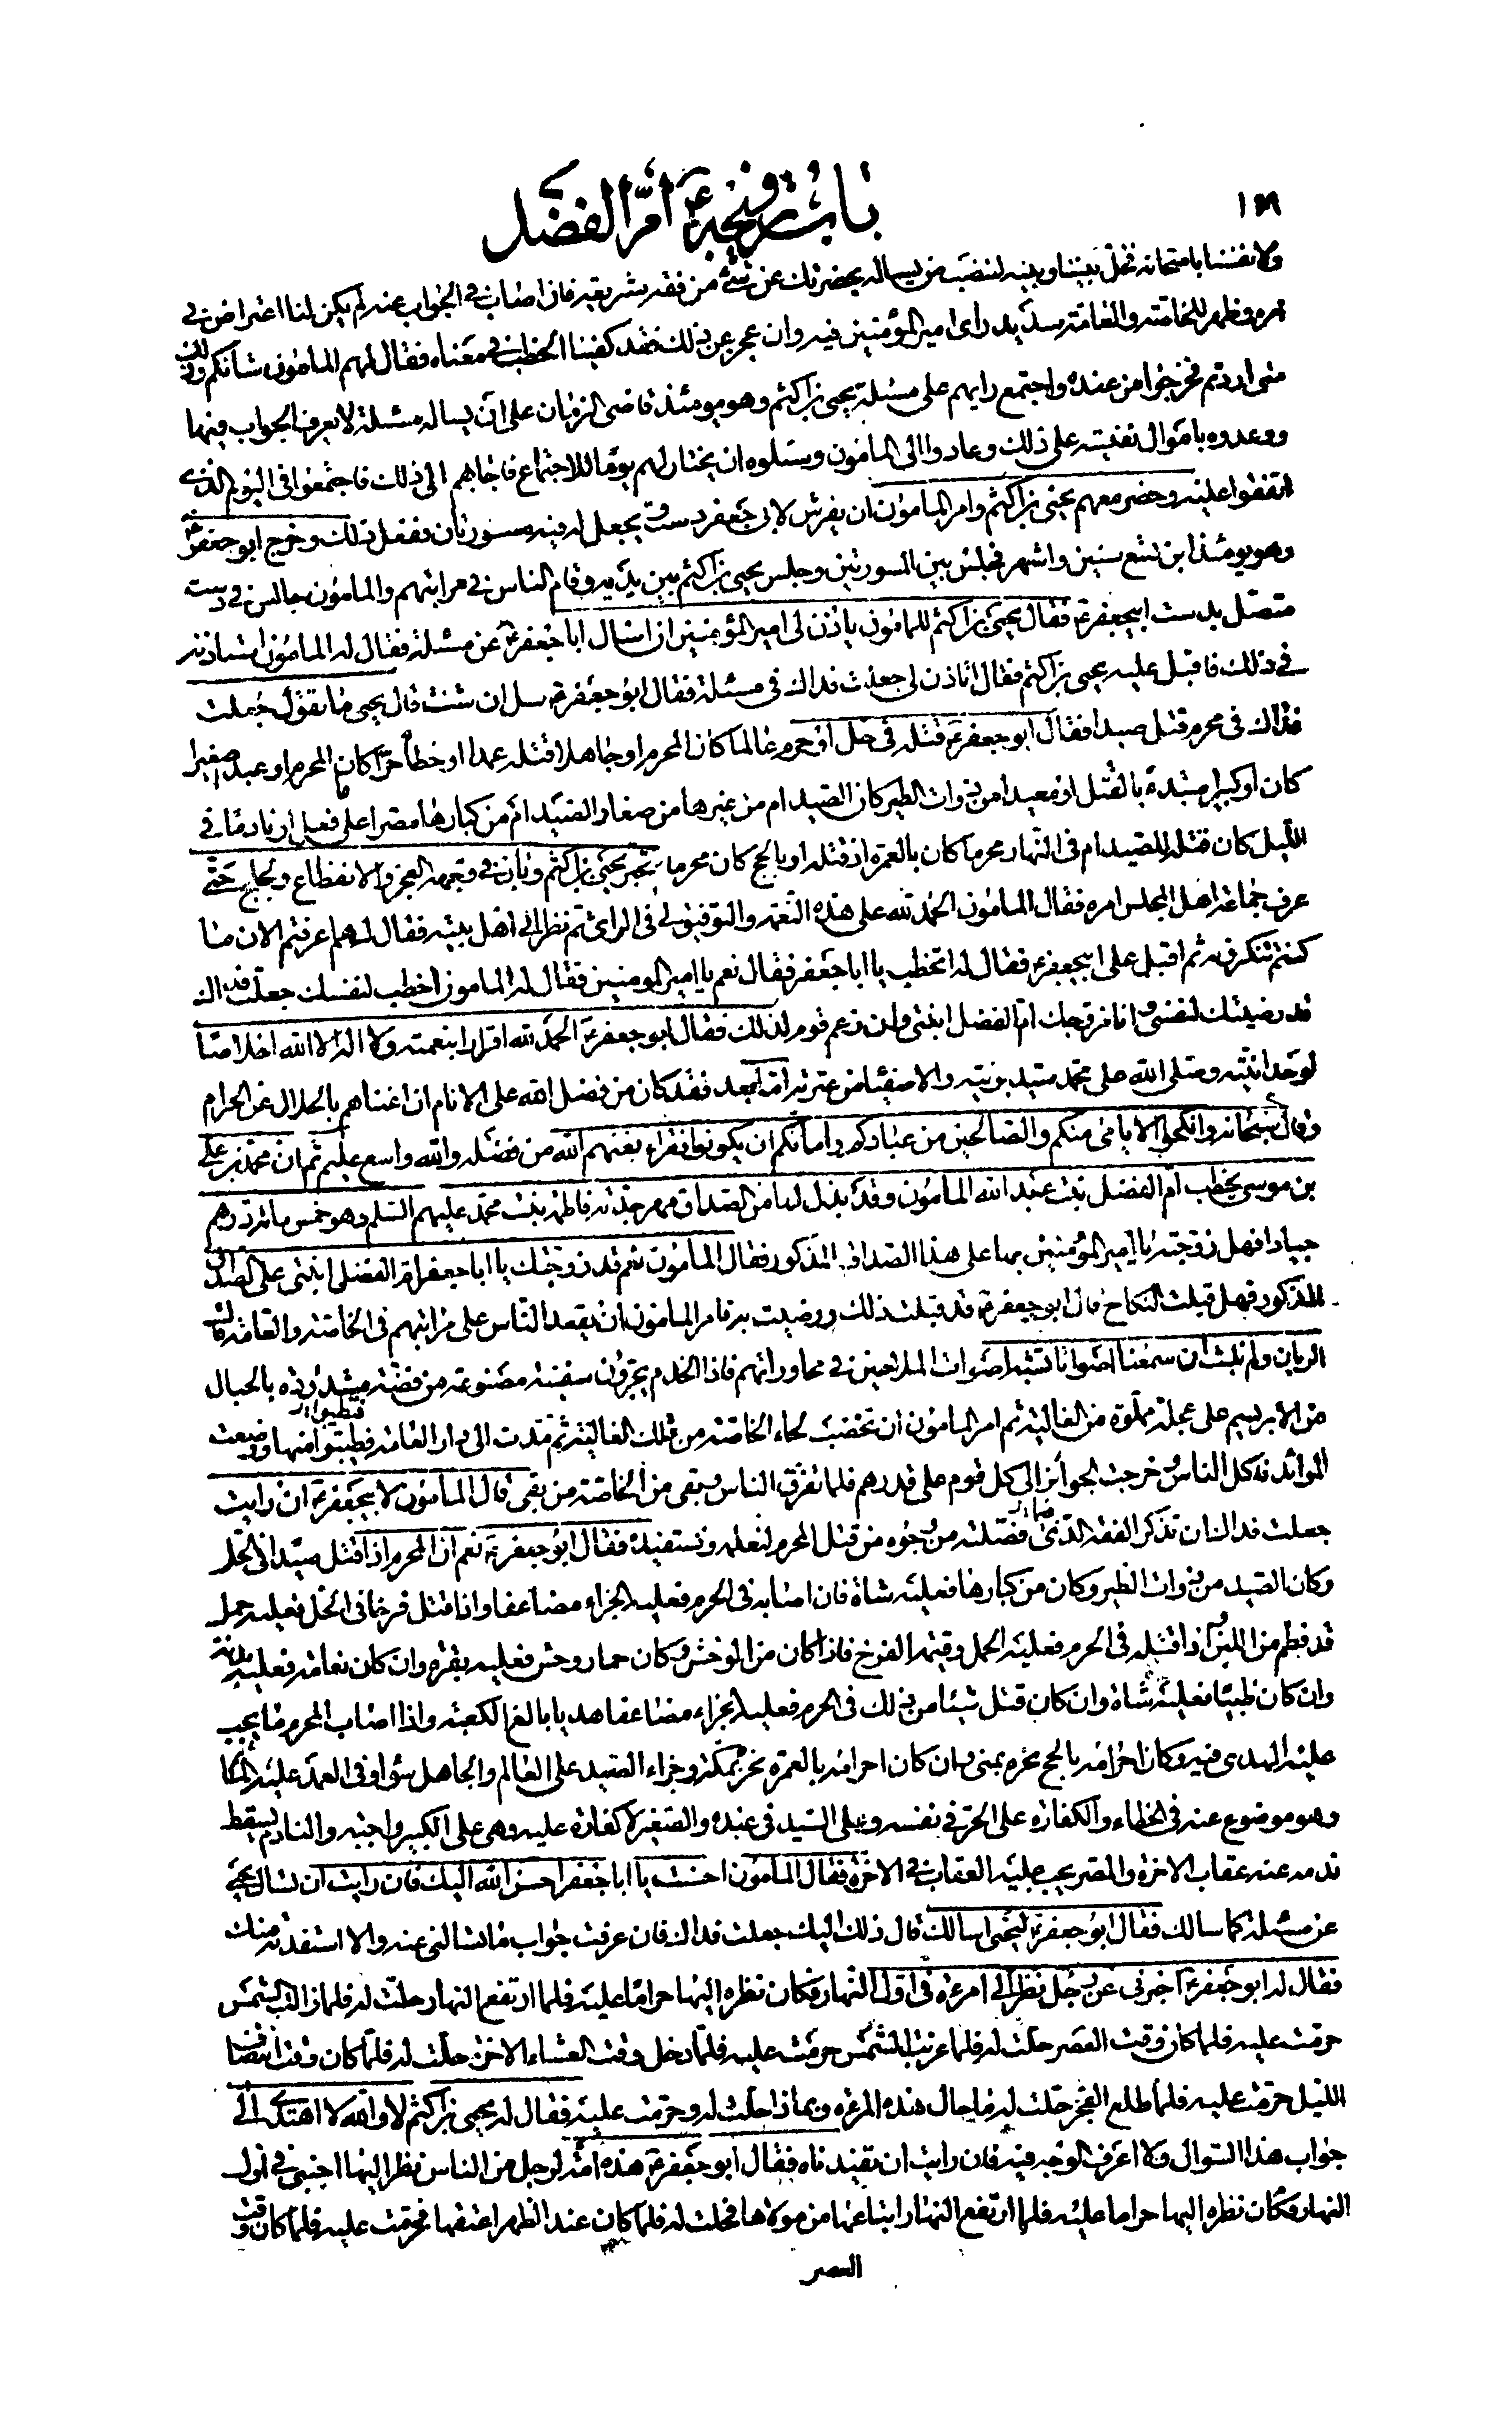 ١٣٩
باب تزويجه ع أم الفضل
ولانفسنا بامتحانه فخل بيننا وبينه لننصب من يساله بحضرتك عن شئ من فقه شريعته فان اصاب في الجواب عنه لم يكن لنا اعتراض في
امره وظهر للخاصة والعامة سديد راى امير المؤمنين فيه وان عجز عن ذلك فقد كفينا الخطب في معناه فقال لهم المامون شانكم وذلك
متى اردتم فخرجوا من عنده واجتمع رايهم على مسئلة يحيى بن اكثم وهو يومئذ قاضى الزمان على ان يساله مسئلة لا يعرف الجواب فيها
ووعدوه باموال نفيسة على ذلك وعادوا الى المامون وسئلوه ان يختار لهم يوما للاجتماع فاجابهم الى ذلك فاجتمعوا في اليوم الذى
اتفقوا عليه وحضر معهم يحيى بن اكثم وامر المامون ان يفرش لابى جعفر دست ويجعل له فيه مسورتان ففعل ذلك وخرج ابو جعفر ع
وهو يومئذ ابن تسع سنين واشهر فجلس بين المسورتين وجلس يحيى بن اكثم بين يديه وقام الناس في مراتبهم والمامون جالس في دست
متصل بدست ابيجعفر ع فقال يحيى بن اكثم للمامون ياذن لى امير المؤمنين ان اسال ابا جعفر ع عن مسئلة فقال له المامون استاذنه
في ذلك فاقبل عليه يحيى بن اكثم فقال اتاذن لى جعلت فداك في مسئلة فقال ابو جعفر ع سل ان شئت قال يحيى ما تقول جعلت
فداك في محرم قتل صيدا فقال ابو جعفر ع قتله في حل او حرم عالما كان المحرم او جاهلا قتله عمدا او خطأ حرا كان المحرم او عبدا صغيرا
كان او كبيرا مبتدءً بالقتل او معيدا من ذوات الطير كان الصيد ام من غيرها من صغار الصيد ام من كبارها مصرا على ما فعل او نادما في
الليل كان قتله للصيد ام في النهار محرما كان بالعمرة اذ قتله او بالحج كان محرما فتحير يحيى بن اكثم وبان في وجهه العجز والانقطاع ولجلج حتى
عرف جماعة اهل المجلس امره فقال المامون الحمد لله على هذه النعمة والتوفيق لى في الراى ثم نظر الى اهل بيته فقال لهم اعرفتم الان ما
كنتم تنكرونه ثم اقبل على ابيجعفر ع فقال له اتخطب يا ابا جعفر فقال نعم يا امير المومنين فقال له المامون اخطب لنفسك جعلت فداك
قد رضيتك لنفسى وانا مزوجك ام الفضل ابنتى وان رغم قوم لذلك فقال ابو جعفر ع الحمد لله اقرارا بنعمته ولا اله الا الله اخلاصا
لوحدانيته وصلى الله على محمد سيد بريته والاصفياء من عترته اما بعد فقد كان من فضل الله على الانام ان اغناهم بالحلال عن الحرام
وقال سبحانه وانكحوا الايامى منكم والصالحين من عبادكم وامائكم ان يكونوا فقراء يغنهم الله من فضله والله واسع عليم ثم ان محمد بن على
بن موسى يخطب ام الفضل بنت عبد الله المامون وقد بذل لها من الصداق مهر جدته فاطمة بنت محمد عليهم السلم وهو خمس مائة درهم
جيادا فهل زوجته يا امير المؤمنين بها على هذا الصداق المذكور فقال المامون نعم قد زوجتك يا ابا جعفر ام الفضل ابنتى على الصداق
المذكور فهل قبلت النكاح قال ابو جعفر ع قد قبلت ذلك ورضيت به فامر المامون ان يقعد الناس على مراتبهم في الخاصة والعامة قال
الريان ولم نلبث ان سمعنا اصواتا تشبه اصوات الملاحين في محاوراتهم فاذا الخدم يجرون سفينة مصنوعة من فضة مشدودة بالحبال
من الابريسم على عجلة مملوة من الغالية ثم امر المامون ان تخضب لحاء الخاصة من تلك الغالية ثم مدت الى دار العامة فطيبوا منها ووضعت
الموائد فاكل الناس وخرجت الجوائز الى كل قوم على قدرهم فلما تفرق الناس وبقى من الخاصة من بقى قال المامون لابيجعفر ع ان رايت
جعلت فداك ان تذكر الفقه الذى فصلته من وجوه من قتل المحرم لنعلمه ونستفيده فقال ابو جعفر ع نعم ان المحرم اذا قتل صيدا في الحل
وكان الصيد من ذوات الطير وكان من كبارها فعليه شاة فان اصابه في الحرم فعليه الجزاء مضاعفا واذا قتل فرخا في الحل فعليه حمل
قد فطم من اللبن واذا قتله في الحرم فعليه الحمل وقيمة الفرخ فاذا كان من الوحش وكان حمار وحش فعليه بقرة وان كان نعامة فعليه بدنة
وان كان ظبيا فعليه شاة وان كان قتل شيئا من ذلك في الحرم فعليه الجزاء مضاعفا هديا بالغ الكعبة واذا اصاب المحرم ما يجب
عليه الهدى فيه وكان احرامه بالحج نحره بمنى وان كان احرامه بالعمرة نحره بمكة وجزاء الصيد على العالم والجاهل سواء وفي العمد عليه الماثم
وهو موضوع عنه في الخطاء والكفارة على الحر في نفسه وعلى السيد في عبده والصغير لا كفارة عليه وهى على الكبير واجبة والنادم يسقط
ندمه عنه عقاب الاخرة والمصر يجب عليه العقاب في الاخرة فقال المامون احسنت يا ابا جعفر احسن الله اليك فان رايت ان تسال يحيى
عن مسئلة كما سالك فقال ابو جعفر ع ليحيى اسالك قال ذلك اليك جعلت فداك فان عرفت جواب ما تسالنى عنه والا استفدته منك
فقال له ابو جعفر ع اخبرنى عن رجل نظر الى امرءة في اول النهار فكان نظره اليها حراما عليه فلما ارتفع النهار حلت له فلما زالت الشمس
حرمت عليه فلما كان وقت العصر حلت له فلما غربت الشمس حرمت عليه فلما دخل وقت العشاء الاخرة حلت له فلما كان وقت انتصاف
الليل حرمت عليه فلما طلع الفجر حلت له ما حال هذه المرءة وبماذا حلت له وحرمت عليه فقال له يحيى بن اكثم لا والله لا اهتدى الى
جواب هذا السوال ولا اعرف الوجه فيه فان رايت ان تفيدناه فقال ابو جعفر ع هذه امة لرجل من الناس نظر اليها اجنبى في اول
النهار وكان نظره اليها حراما عليه فلما ارتفع النهار ابتاعها من مولاها فحلت له فلما كان عند الظهر اعتقها فحرمت عليه فلما كان وقت
العصر